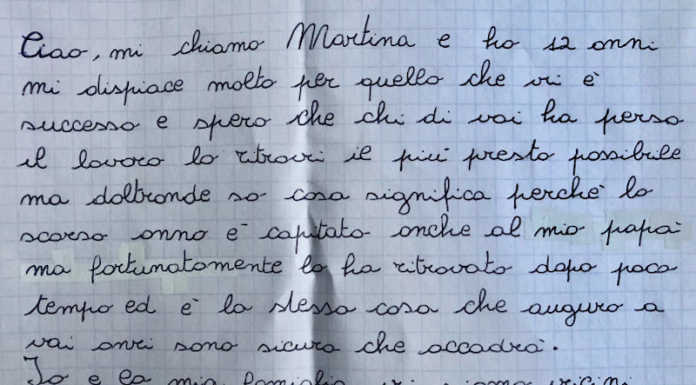 Ciao, mi chiamo Martina e ho 12 anni
mi dispiace molto per quello che vi è
successo e spero che chi di voi ha perso
il lavoro lo ritrovi il più presto possibile
ma doltronde so cosa significa perchè lo
scorso anno è capitato anche al mio papà
ma fortunatamente lo ha ritrovato dopo poco
tempo ed è la stessa cosa che auguro a
voi anzi sono sicura che accadrà.
Io e la mia famiglia vi siamo vicini